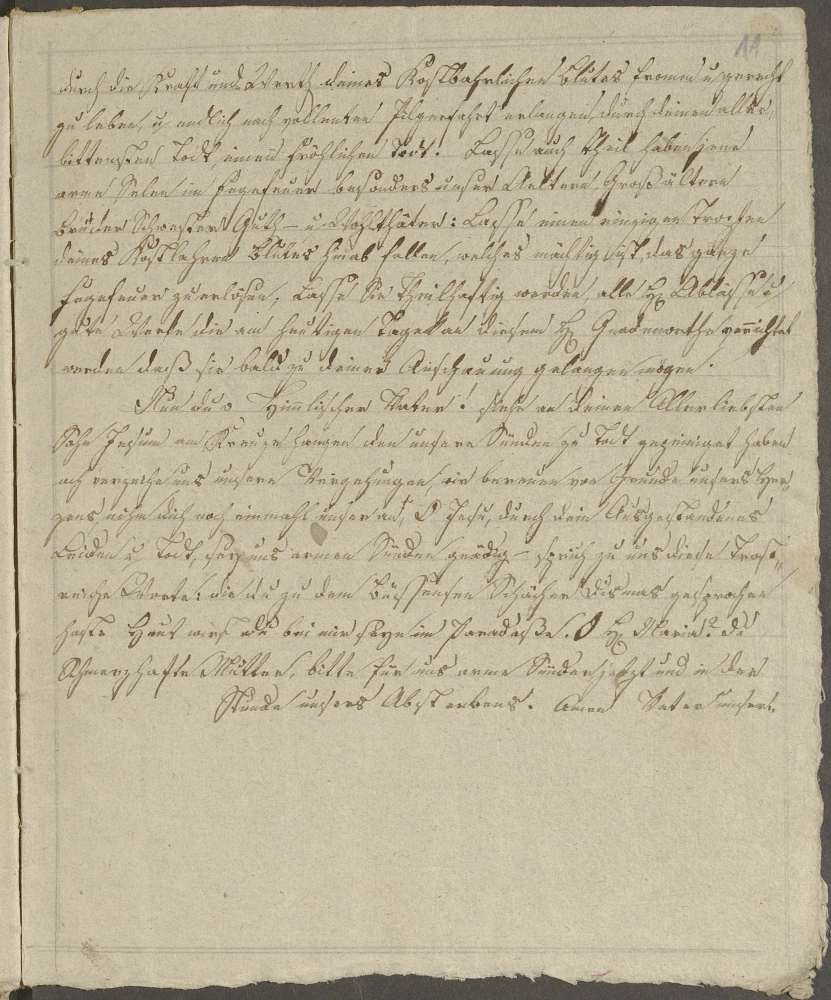 11
durch die Kraft und Werth deines Kostbahrlichen Blutes fromm u gerecht
zu leben, u endlich nach vollenter Pilgerfahrt erlangen, durch deinen aller-
bittersten Todt, einen fröhlichen Todt. Lasse auch Theil haben jene
arme Selen im Fegefeuer besonders unser Aeltern, Großältern
Brüder Schwester Guth- u. Wohlthäter: Lasse einen einzigen Tropfen
deines Kostbahren Blutes hinab fallen, welches mächtig ist, das ganze
Fegefeuer zu erlösen, Lasse Sie Theilhaftig werden, alle H Ablässe u
gute Werke die am heutigen Tage an diesem H Gnadenorthe verrichtet
werden daß sie bald zu deiner Anschauung gelangen mögen.
Nun du o Himlischer Vater! siehe an deinen Allerliebsten
Sohn Jesum am Kreuze hangen den unsere Sünden zu Todt gepeiniget haben
ach verzeihe uns unsere Vergehungen, wir bereuen von Grunde unsers Her-
zens nihm dich noch einmahl unser an, O Jesu, durch dein Ausgestandenes
Leiden u Todt, sey uns armen Sünder gnädig - sprich zu uns diese Trost-
reiche Worte: die du zu dem Büssenten Schächer Dismas gesprochen
hast Heut wirst du bei mir seyn im Paradeße. O H Maria? du
Schmerzhafte Mutter, bitte für uns arme Sünder jetzt und in der
Stunde unsers Absterbens. Amen Vater unser